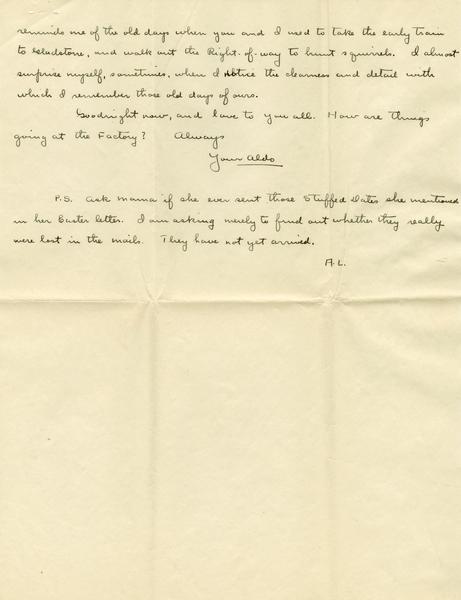 reminds me of the old days when you and I used to take the early train
to Gladstone, and walk out the Right-of-way to hunt squirrels. I almost
surprise myself, sometimes, when I notice the clearness and detail with
which I remember those old days of ours.
Goodnight now, and love to you all. How are things
going at the Factory? Always
Your Aldo
P.S. Ask Mama if she ever sent those Stuffed Dates she mentioned
in her Easter letter. I am asking merely to find out whether they really
were lost in the mails. They have not yet arrived.
A.L.